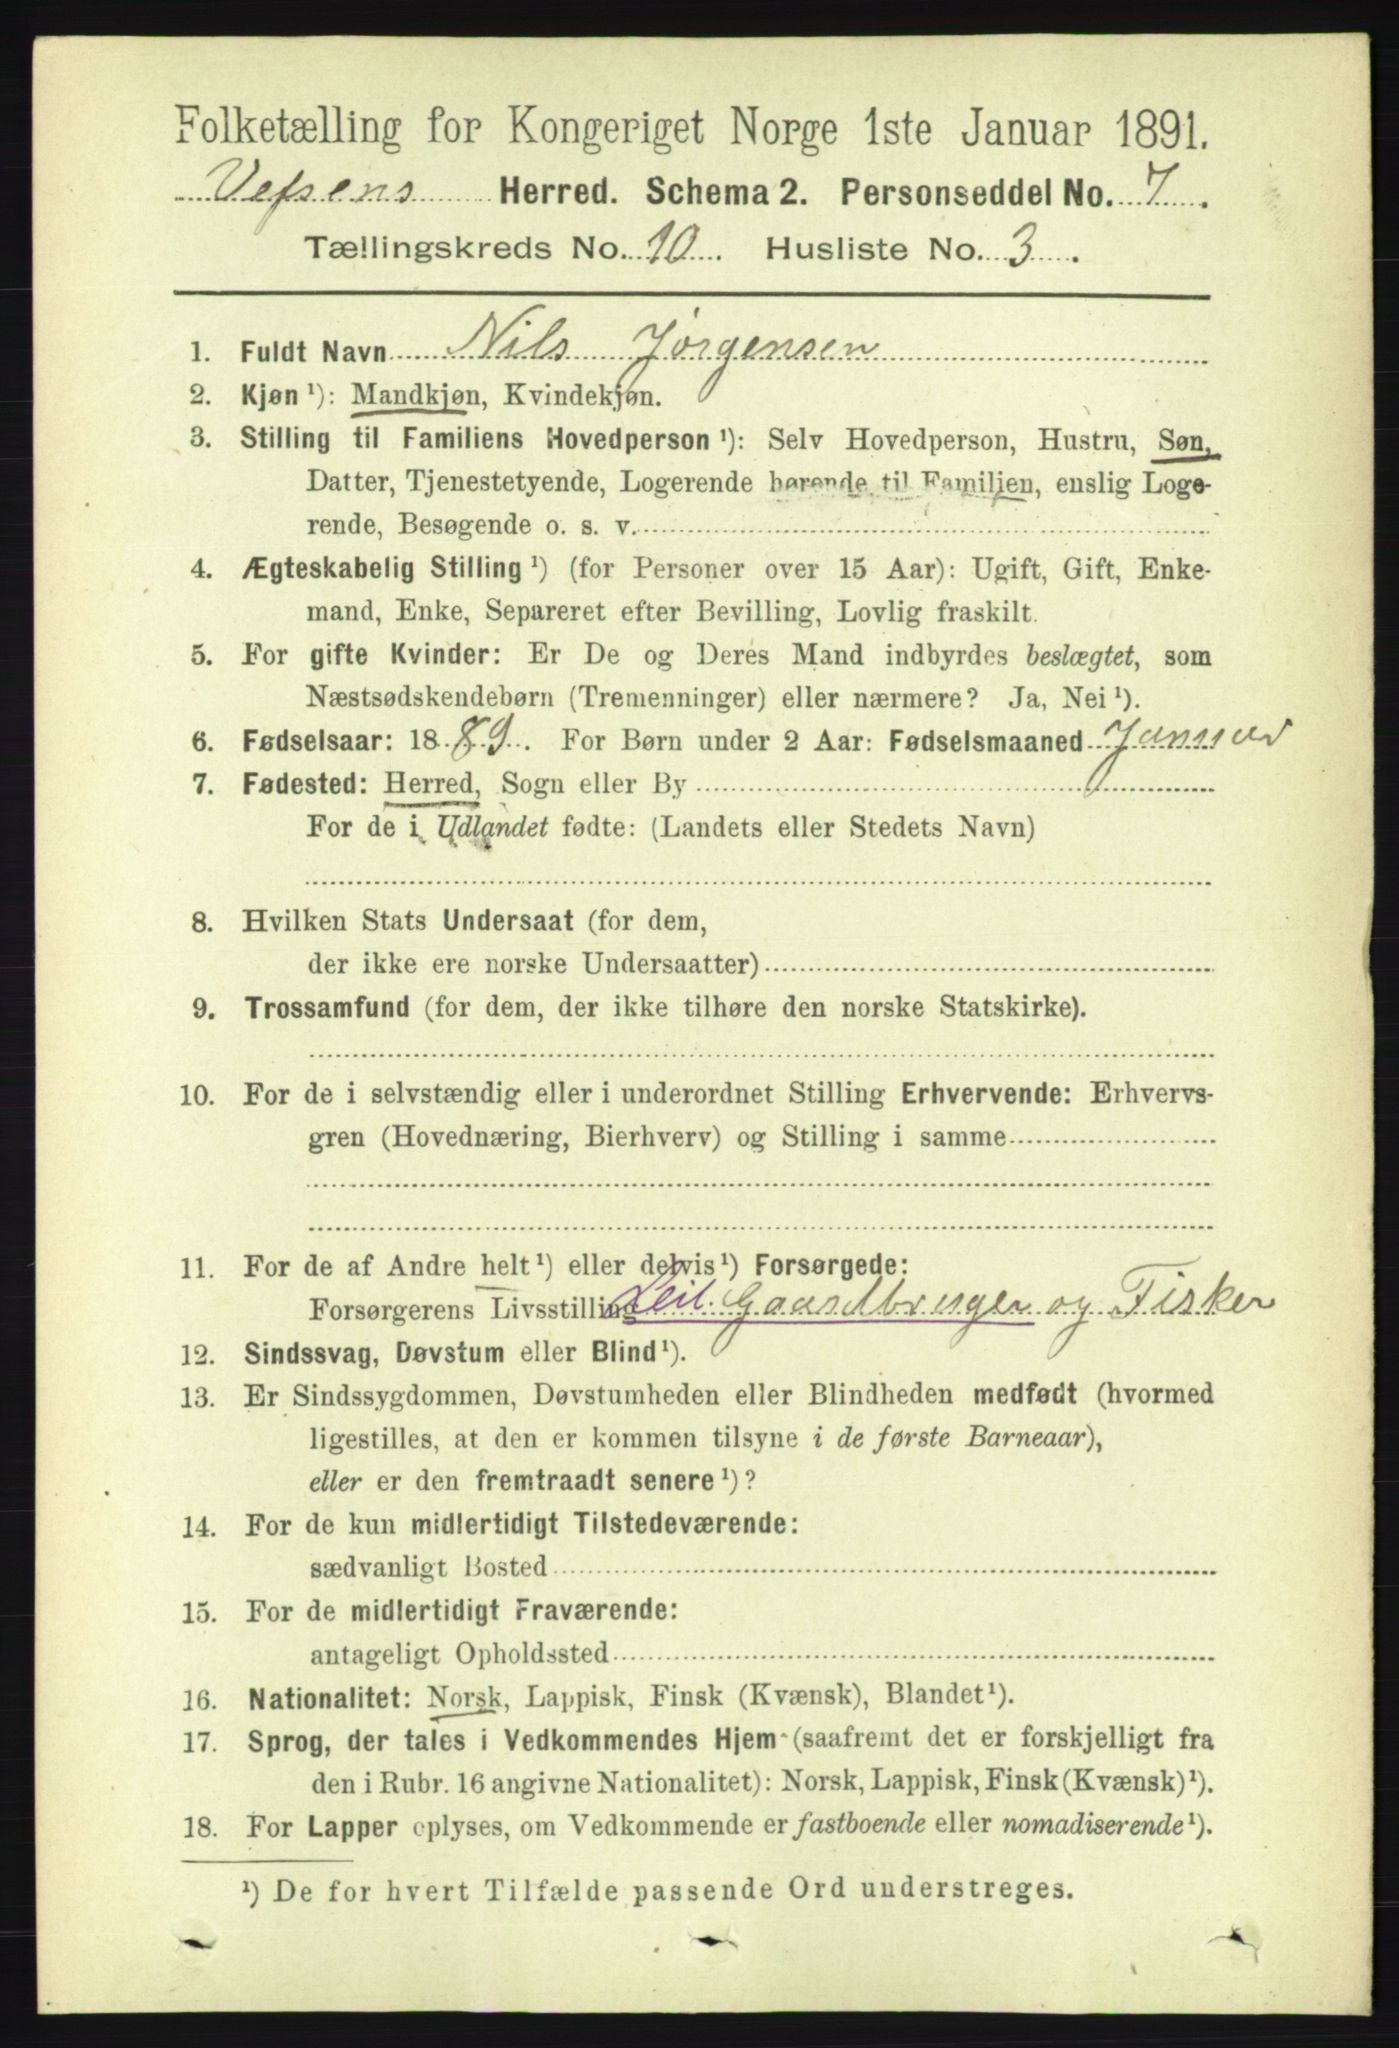 Folketælling for Kongeriget Norge 1ste Januar 1891.
Vefsens Herred. Schema 2. Personseddel No. 7.
Tællingskreds No. 10. Husliste No. 3.
1. Fuldt Navn Nils Jørgensen
2. Kjøn ¹): Mandkjøn, Kvindekjøn.
3. Stilling til Familiens Hovedperson ¹): Selv Hovedperson, Hustru, Søn,
Datter, Tjenestetyende, Logerende hørende til Familien, enslig Loge-
rende, Besøgende o. s. v.
4. Ægteskabelig Stilling ¹) (for Personer over 15 Aar): Ugift, Gift, Enke-
mand, Enke, Separeret efter Bevilling, Lovlig fraskilt.
5. For gifte Kvinder: Er De og Deres Mand indbyrdes beslægtet, som
Næstsødskendebørn (Tremenninger) eller nærmere? Ja, Nei ¹).
6. Fødselsaar: 1889. For Børn under 2 Aar: Fødselsmaaned Januar
7. Fødested: Herred, Sogn eller By
For de i Udlandet fødte: (Landets eller Stedets Navn)
8. Hvilken Stats Undersaat (for dem,
der ikke ere norske Undersaatter)
9. Trossamfund (for dem, der ikke tilhøre den norske Statskirke).
10. For de i selvstændig eller i underordnet Stilling Erhvervende: Erhvervs-
gren (Hovednæring, Bierhverv) og Stilling i samme
11. For de af Andre helt ¹) eller delvis ¹) Forsørgede:
Forsørgerens Livsstilling Leil. Gaardbruger og Fisker
12. Sindssvag, Døvstum eller Blind ¹).
13. Er Sindssygdommen, Døvstumheden eller Blindheden medfødt (hvormed
ligestilles, at den er kommen tilsyne i de første Barneaar),
eller er den fremtraadt senere ¹)?
14. For de kun midlertidigt Tilstedeværende:
sædvanligt Bosted
15. For de midlertidigt Fraværende:
antageligt Opholdssted
16. Nationalitet: Norsk, Lappisk, Finsk (Kvænsk), Blandet ¹).
17. Sprog, der tales i Vedkommendes Hjem (saafremt det er forskjelligt fra
den i Rubr. 16 angivne Nationalitet): Norsk, Lappisk, Finsk (Kvænsk) ¹).
18. For Lapper oplyses, om Vedkommende er fastboende eller nomadiserende ¹).
¹) De for hvert Tilfælde passende Ord understreges.